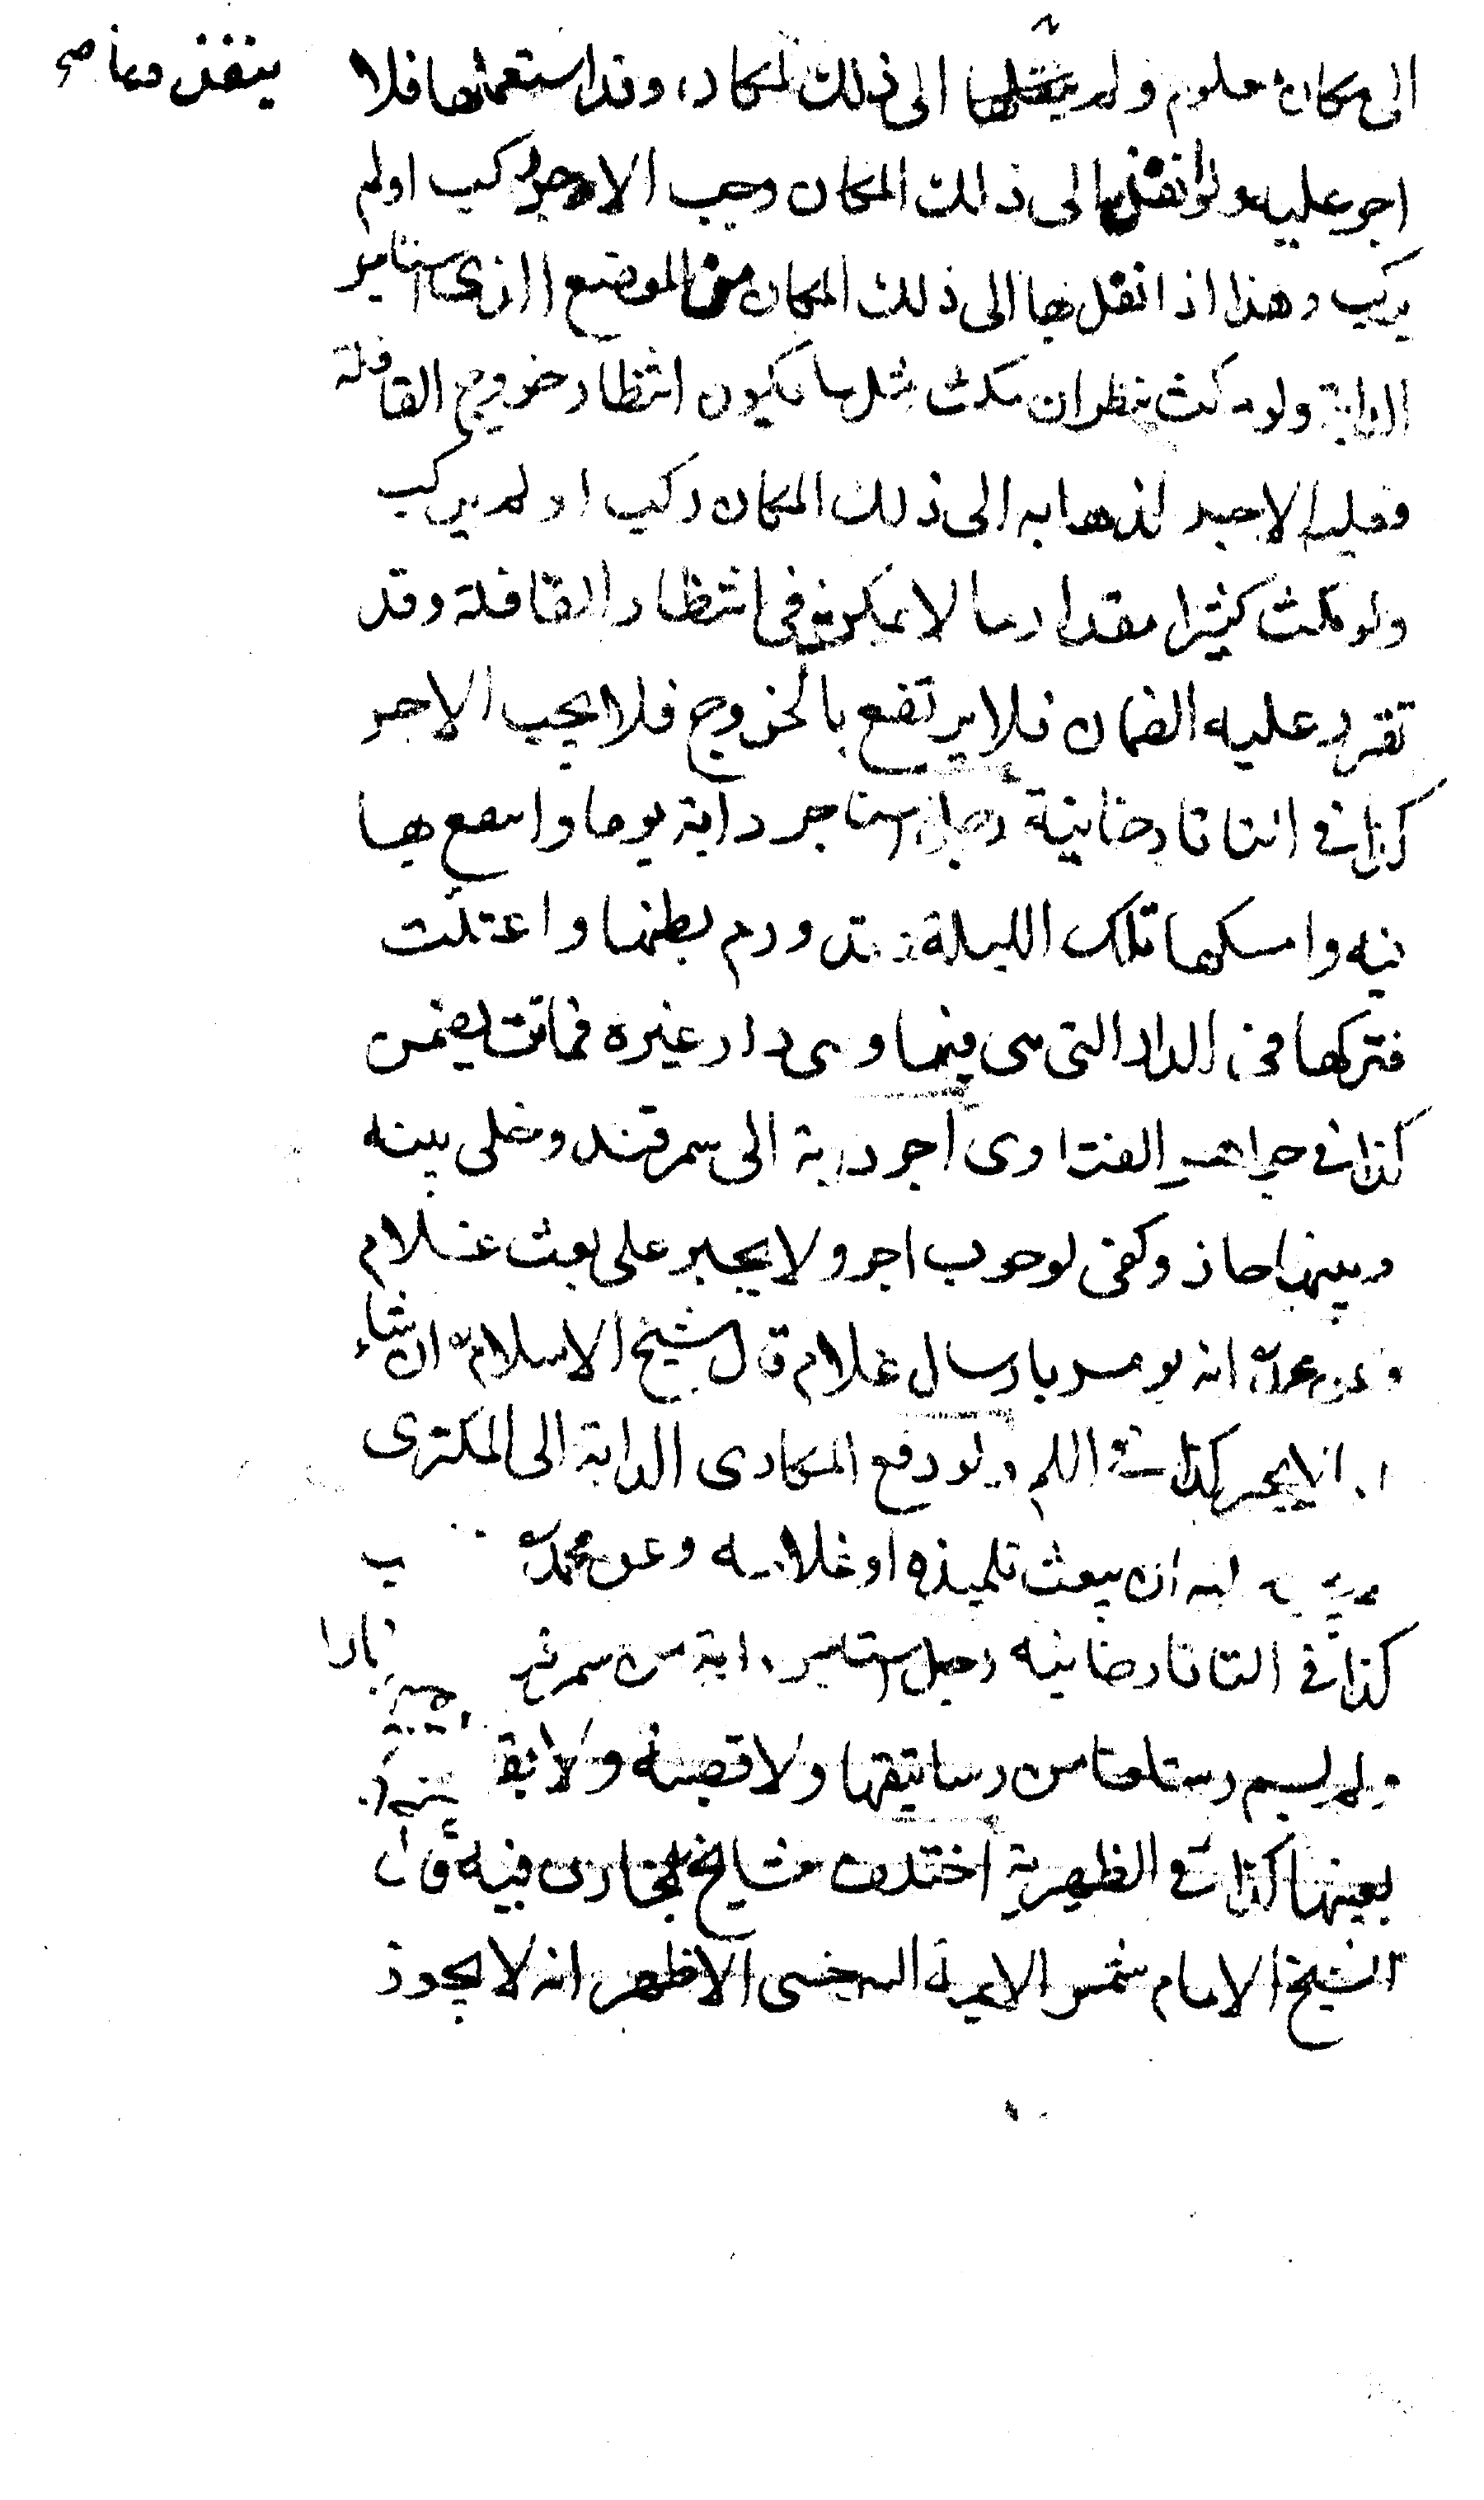 الى مكان معلوم ولم ينقلها الى ذلك المكان وقد استعملها فلا
ينقذ منها صح
اجر عليه ولو انقلها الى ذلك المكان وجب الاجر ركب اولم
يركب وهذا اذا نقلها الى ذلك المكان من الموضع الذى استاجر
الدابة ولو مكث ينظر ان مكث مثل ما يكون انتظار خروج القافلة
فعليه الاجر لذهابه الى ذلك المكان ركب او لم يركب
ولو مكث كثيرا مقدار ما لا يمكث فى انتظار القافلة وقد
تقرر عليه الضمان فلا يرتفع بالخروج فلا يجب الاجر
كذا فى التاتارخانية رجل استاجر دابة يوما وانتفع بها
فيه وامسكها تلك الليلة وقد ورم بطنها واعتلت
فتركها فى الدار التى هى فيها وهى دار غيره فماتت يضمن
كذا فى جواهر الفتاوى آجر دابة الى سمرقند وخلى بينه
وبينها جاز وكفى لوجوب اجر ولا يجبر على بعث غلام
وعن انه يومر بارسال غلام قال شيخ الاسلام ان شاء
لا يجبر كذا فى ولو دفع المكارى الدابة الى المكترى
ليس له ان يبعث تلميذه او غلامه وعن محمد
كذا فى التاتارخانيه رجل استاجر دابة من سمرقند بخارا
ولم يسم رستاقا من رساتيقها ولا قصبة ولا
بعينها كذا فى الظهيرية اختلف مشايخ بخارى فيه قال
الشيخ الامام شمس الايمة السرخسى الاظهر انه لا يجوز